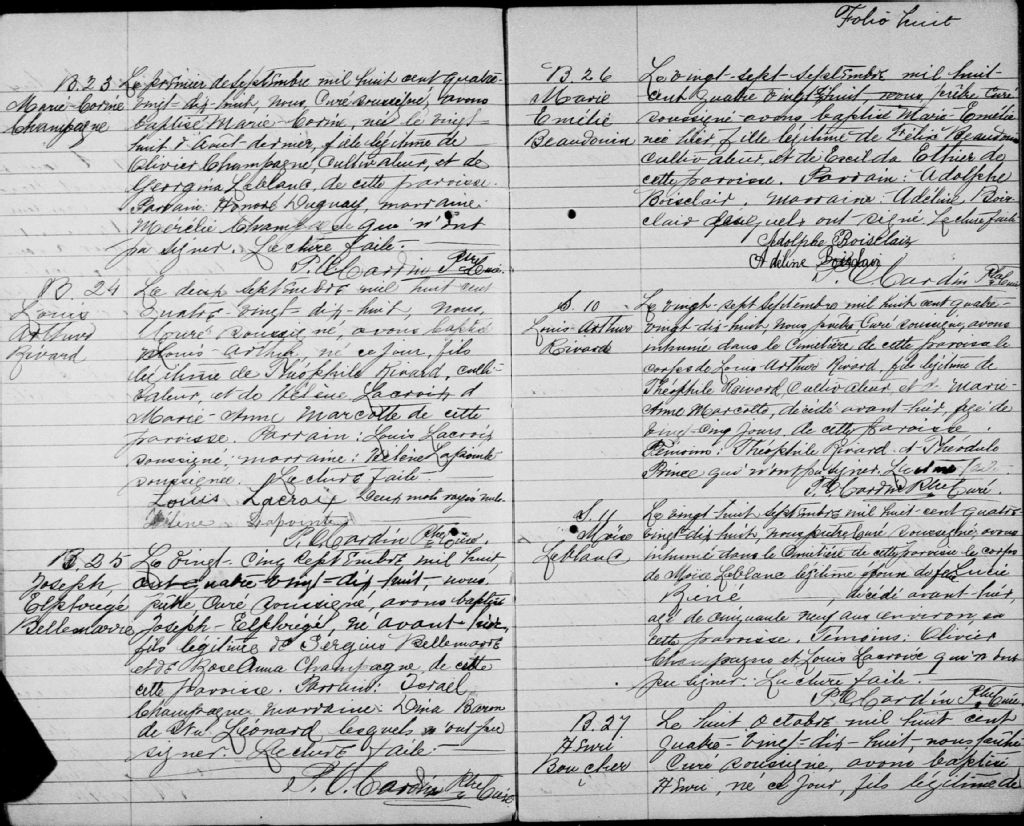 B. 23
Marie-Corine
Champagne
Le premier de septembre mil huit cent quatre-
vingt-dix-huit, nous, Curé soussigné, avons
baptisé Marie-Corin, née le vingt-
huit d'Aout dernier, fille légitime de
Olivier Champagne, Cultivateur, et de
Georgina Leblanc, de cette paroisse.
Parrain: Honoré Duguay, marraine:
Mercélie Champagne qui n'ont
pu signer. Lecture faite.
P. U. Cardin Ptre Curé.
B. 24
Louis
Arthur
Rivard
Le deux septembre mil huit cent
quatre-vingt-dix-huit, nous,
Curé soussigné avons baptisé
Louis-Arthur, né ce jour, fils
légitime de Théophile Rivard, culti-
vateur, et de Hélène Lacroix d
Marie-Anne Marcotte de cette
paroisse. Parrain: Louis Lacroix
soussigné, marraine: Hélène Lapointe
soussignée. Lecture faite.
Louis Lacroix Deux mots rayés nuls
Hélène Lapointe
P. U. Cardin Ptre Curé.
B. 25
Joseph
Elphrégé
Bellemarre
Le vingt-cinq septembre mil huit
cent quatre-vingt-dix-huit, nous,
prêtre Curé soussigné, avons baptisé
Joseph-Elphrégé, né avant hier,
fils légitime de Sergius Bellemarre
et de Rose Anna Champagne de cette
cette paroisse. Parrain: Israel
Champagne marraine: Dina Baron
de St. Léonard lesquels n'ont pu
signer. Lecture faite.
P. U. Cardin Ptre Curé
Folio huit
B. 26
Marie
Emélie
Beaudouin
Le vingt-sept septembre mil huit-
cent quatre vingt huit, nous, prêtre Curé
soussigné avons baptisé Marie-Emélie
née hier, fille légitime de Beaudouin
cultivateur, et de Exilda Ethier de
cette paroisse. Parrain: Adolphe
Boisclair, marraine: Adéline Bois-
clair lesquels ont signé. Lecture faite
Adolphe Boisclair
Adeline Boisclair
P. U. Cardin Ptre Curé
S. 10
Louis-Arthur
Rivard
Le vingt-sept septembre mil huit cent quatre-
vingt-dix-huit, nous, prêtre, Curé soussigné, avons
inhumé dans le Cimetière de cette paroisse le
corps de Louis Arthur Rivard, fils légitime de
Théophile Rivard, Cultivateur, et d Marie-
Anne Marcotte, décédé avant-hier, agé de
vingt-cinq jours, de cette paroisse.
Témoins: Théophile Rivard et Théodule
Prince qui n'ont pu signer. Lecture faite.
P. U. Cardin Ptre Curé.
S. 11
Moïse
Leblanc
Le vingt-huit septembre mil huit cent quatre-
vingt-dix huit, nous prêtre Curé soussigné, avons
inhumé dans le Cimetière de cette paroisse le corps
de Moïse Leblanc légitime époux de feu Lucie
décédé avant-hier,
agé de cinquante neuf ans environ,
cette paroisse. Témoins: Olivier
Champagne et Louis Lacroix qui n'ont
pu signer. Lecture faite.
P. U. Cardin Ptre Curé
B. 27
Henri
Boucher
Le huit Octobre mil huit cent
quatre-vingt-dix-huit, nous prêtre
Curé soussigné, avons baptisé
Henri, né ce jour, fils légitime de